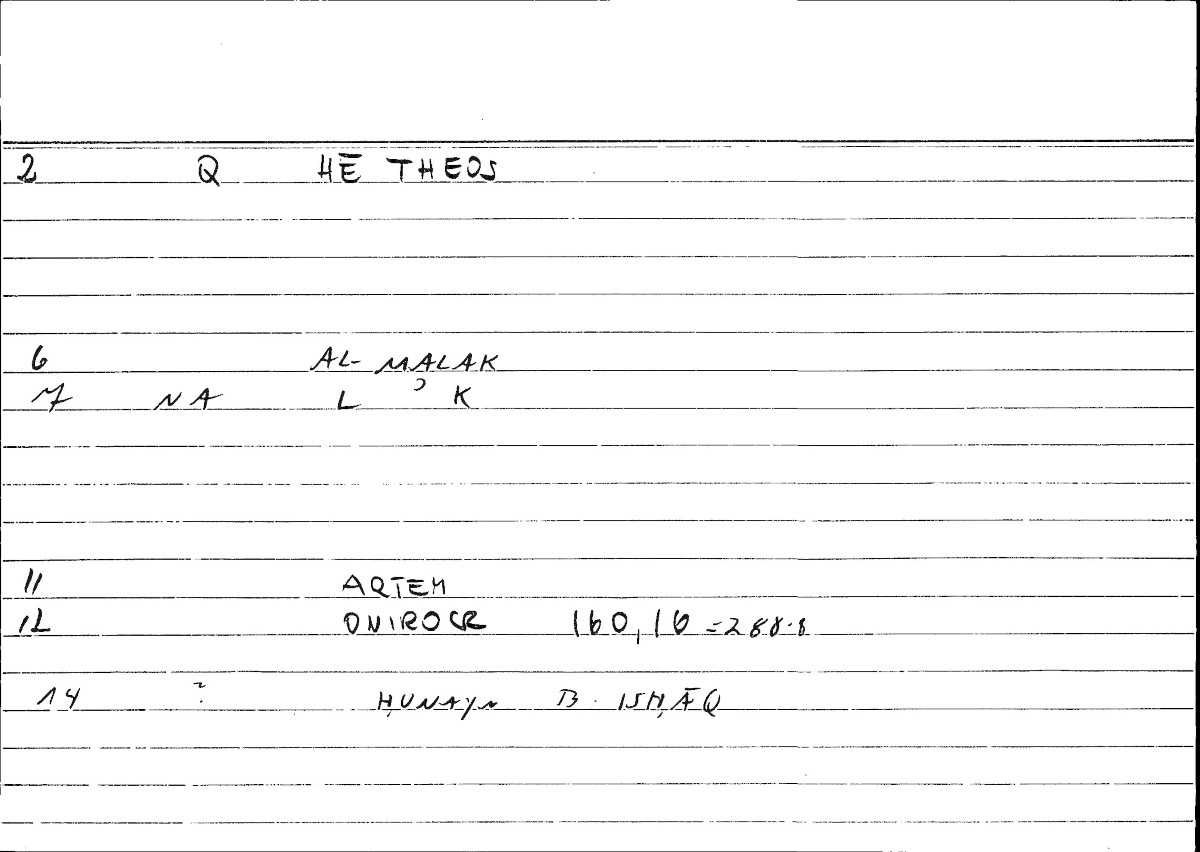 2 Q HĒ THEOS
6 AL-MALAK
7 NA L ʾ K
11 ARTEM
12 ONIROCR 160,16 =288.8
14 ? ḤUNAYN B. ISḤĀQ